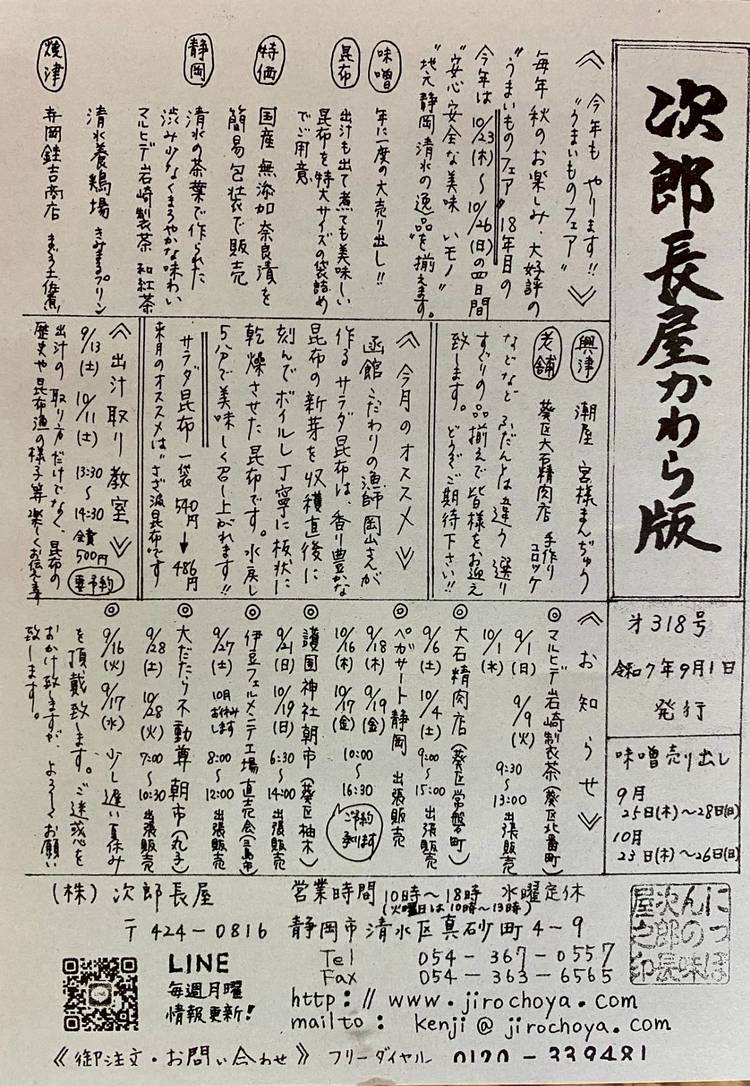 次郎長屋かわら版
才318号
令和7年9月1日
発行
味噌売り出し
9月
25日(木)〜28日(日)
10月
23日(木)〜26日(日)
《今年も やります!!
"うまいものフェア"》
毎年 秋のお楽しみ、大好評の
"うまいものフェア" 18年目の
今年は 10/23(木)〜10/26(日)の四日間
"安心 安全な美味いモノ"
"地元静岡 清水の逸品"を揃えます。
味噌 年に一度の大売り出し!!
昆布 出汁も出て煮ても美味しい
昆布を特大サイズの袋詰め
でご用意
特価 国産 無添加 奈良漬を
簡易包装で販売
静岡 清水の茶葉で作られた
渋み少なくまろやかな味わい
マルヒデ岩崎製茶 和紅茶
清水養鶏場 きみまるプリン
焼津 寺岡鉎吉商店 まぐろ土佐煮
興津 潮屋 宮様まんぢゅう
老舗 葵区大石精肉店 手作りコロッケ
などなど ふだんとは違う選り
すぐりの品揃えで皆様をお迎え
致します。どうぞご期待下さい!!
《今月のオススメ》
函館 こだわりの漁師 岡山さんが
作るサラダ昆布は、香り豊かな
昆布の新芽を収穫直後に
刻んでボイルし丁寧に板状に
乾燥させた昆布です。水戻し
5分で美味しく召し上がれます!!
サラダ昆布 一袋 540円→486円
来月のオススメは"さざ波昆布"です
《出汁取り教室》
9/13(土) 10/11(土) 13:30〜14:30 会費500円 要予約
出汁の取り方だけでなく、昆布の
歴史や昆布漁の様子等楽しくお伝えます
《お知らせ》
◎マルヒデ岩崎製茶(葵区北番町)
9/1(月) 9/9(火) 9:30〜13:00 出張販売
10/1(水)
◎大石精肉店(葵区常磐町)
9/6(土) 10/4(土) 9:00〜15:00 出張販売
◎ペガサート静岡 出張販売
9/18(木) 9/19(金) 10:00〜16:30
10/16(木) 10/17(金)
ご予約承ります
◎護国神社朝市(葵区柚木)
9/21(日) 10/19(日) 6:30〜14:00 出張販売
◎伊豆フェルメンテ工場 直売会(三島市)
9/27(土) 10月お休みします 8:00〜12:00 出張販売
◎大だたら不動尊 朝市(丸子)
9/28(土) 10/28(火) 7:00〜10:30 出張販売
◎9/16(火) 9/17(水) 少し遅い夏休み
を頂戴致します。ご迷惑を
おかけ致しますが、よろしくお願い
致します。
(株)次郎長屋 営業時間 10時〜18時 水曜定休
(火曜日は10時〜13時)
〒424-0816 静岡市清水区真砂町4-9
Tel 054-367-0557
Fax 054-363-6565
http://www.jirochoya.com
mailto: kenji@jirochoya.com
LINE
毎週月曜
情報更新!
《御注文・お問い合わせ》 フリーダイヤル 0120-339481
につぽ
んの味
次郎長
屋之印